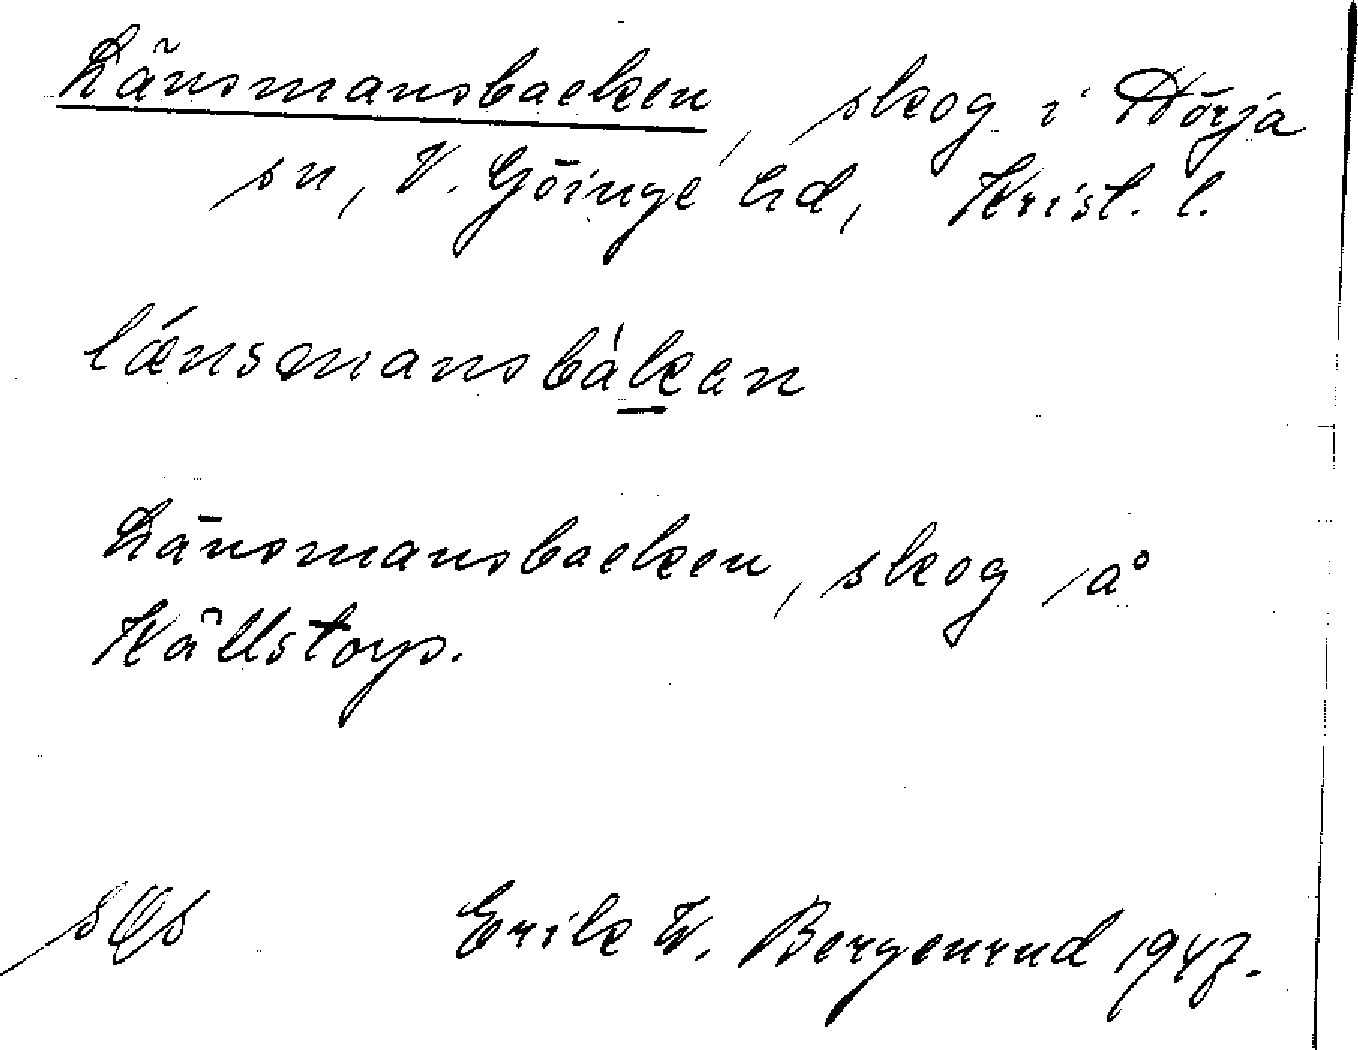 Länsmansbacken, skog i Hörja
sn, V. Göinge hd, Krist. l.
lǽnsmansbàkan
Länsmansbacken, skog på
Källstorp.
Erik W. Bergenrud 1947.